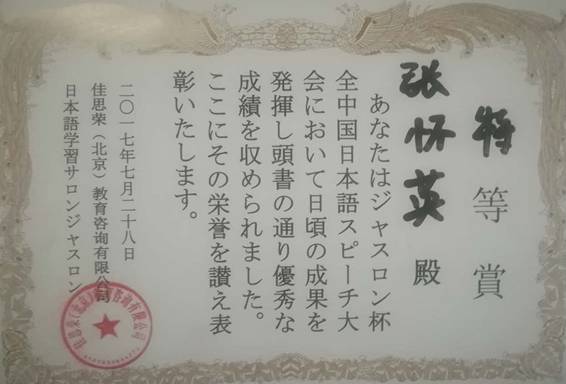 特等賞
张怀英 殿
あなたはジャスロン杯
全中国日本語スピーチ大
会において日頃の成果を
発揮し頭書の通り優秀な
成績を収められました。
ここにその栄誉を讃え表
彰いたします。
二〇一七年七月二十八日
佳思荣（北京）教育咨询有限公司
日本語学習サロンジャスロン
佳思荣(北京)教育咨询有限公司